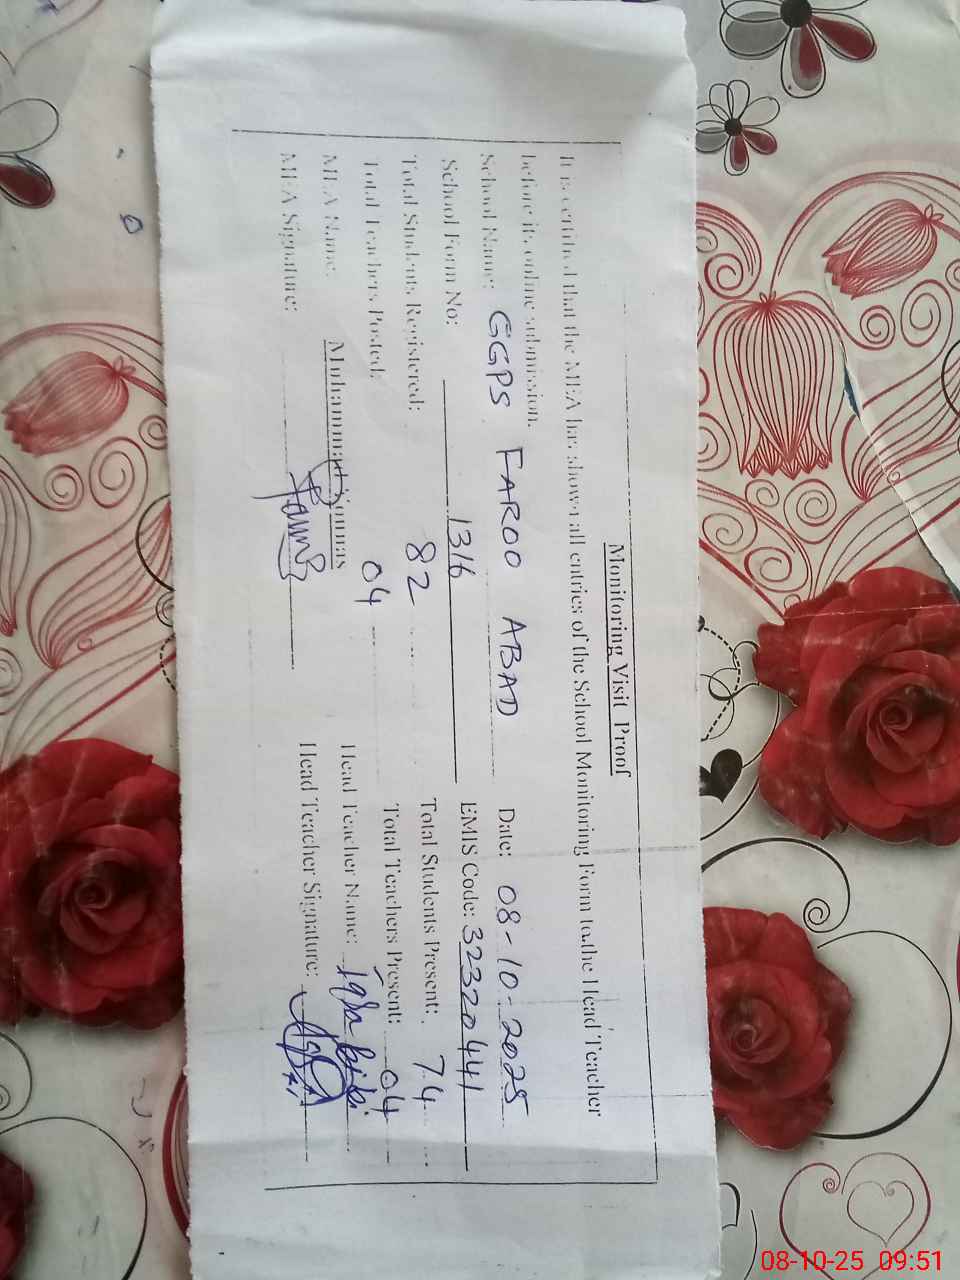 Monitoring Visit Proof
It is certified that the MEA has shown all entries of the School Monitoring Form to the Head Teacher
before its online submission.
School Name: GGPS FAROO ABAD Date: 08-10-2025
School Form No: 1316 EMIS Code: 32320441
Total Students Registered: 82 Total Students Present: 74
Total Teachers Posted: 04 Total Teachers Present: 04
MEA Name: Muhammad Head Teacher Name: Iqra bibi
MEA Signature: Head Teacher Signature:
08-10-25 09:51